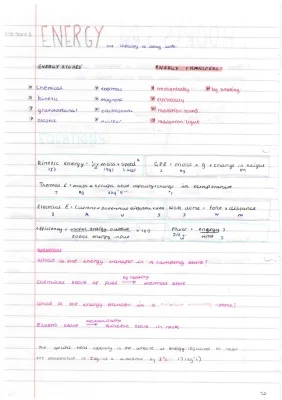 ENERGY
the capacity to doing work
ENERGY STORES
ENERGY TRANSFERS
Chemical
thermal
mechanically
by heating
kinetic
magnetic
electrically
gravitational
electrostatic
radiation sound
elastic
nuclear
radiation light
EQUATIONS
Kinetic energy = ½ mass × speed²
GPE = mass × g × change in height
Thermal E = mass × specific heat capacity × change in temperature
Electrical E = Current × potential difference × time
Work done = force × distance
efficiency = useful energy output / total energy input × 100
Power = energy / time
What is the energy transfer in a camping stove?
Chemical store of fuel → by heating → thermal store
What is the energy transfer in a
Elastic store → mechanically → kinetic store in rock
The specific heat capacity is the amount of energy required to raise
the temperature of 1kg of a substance by 1°c